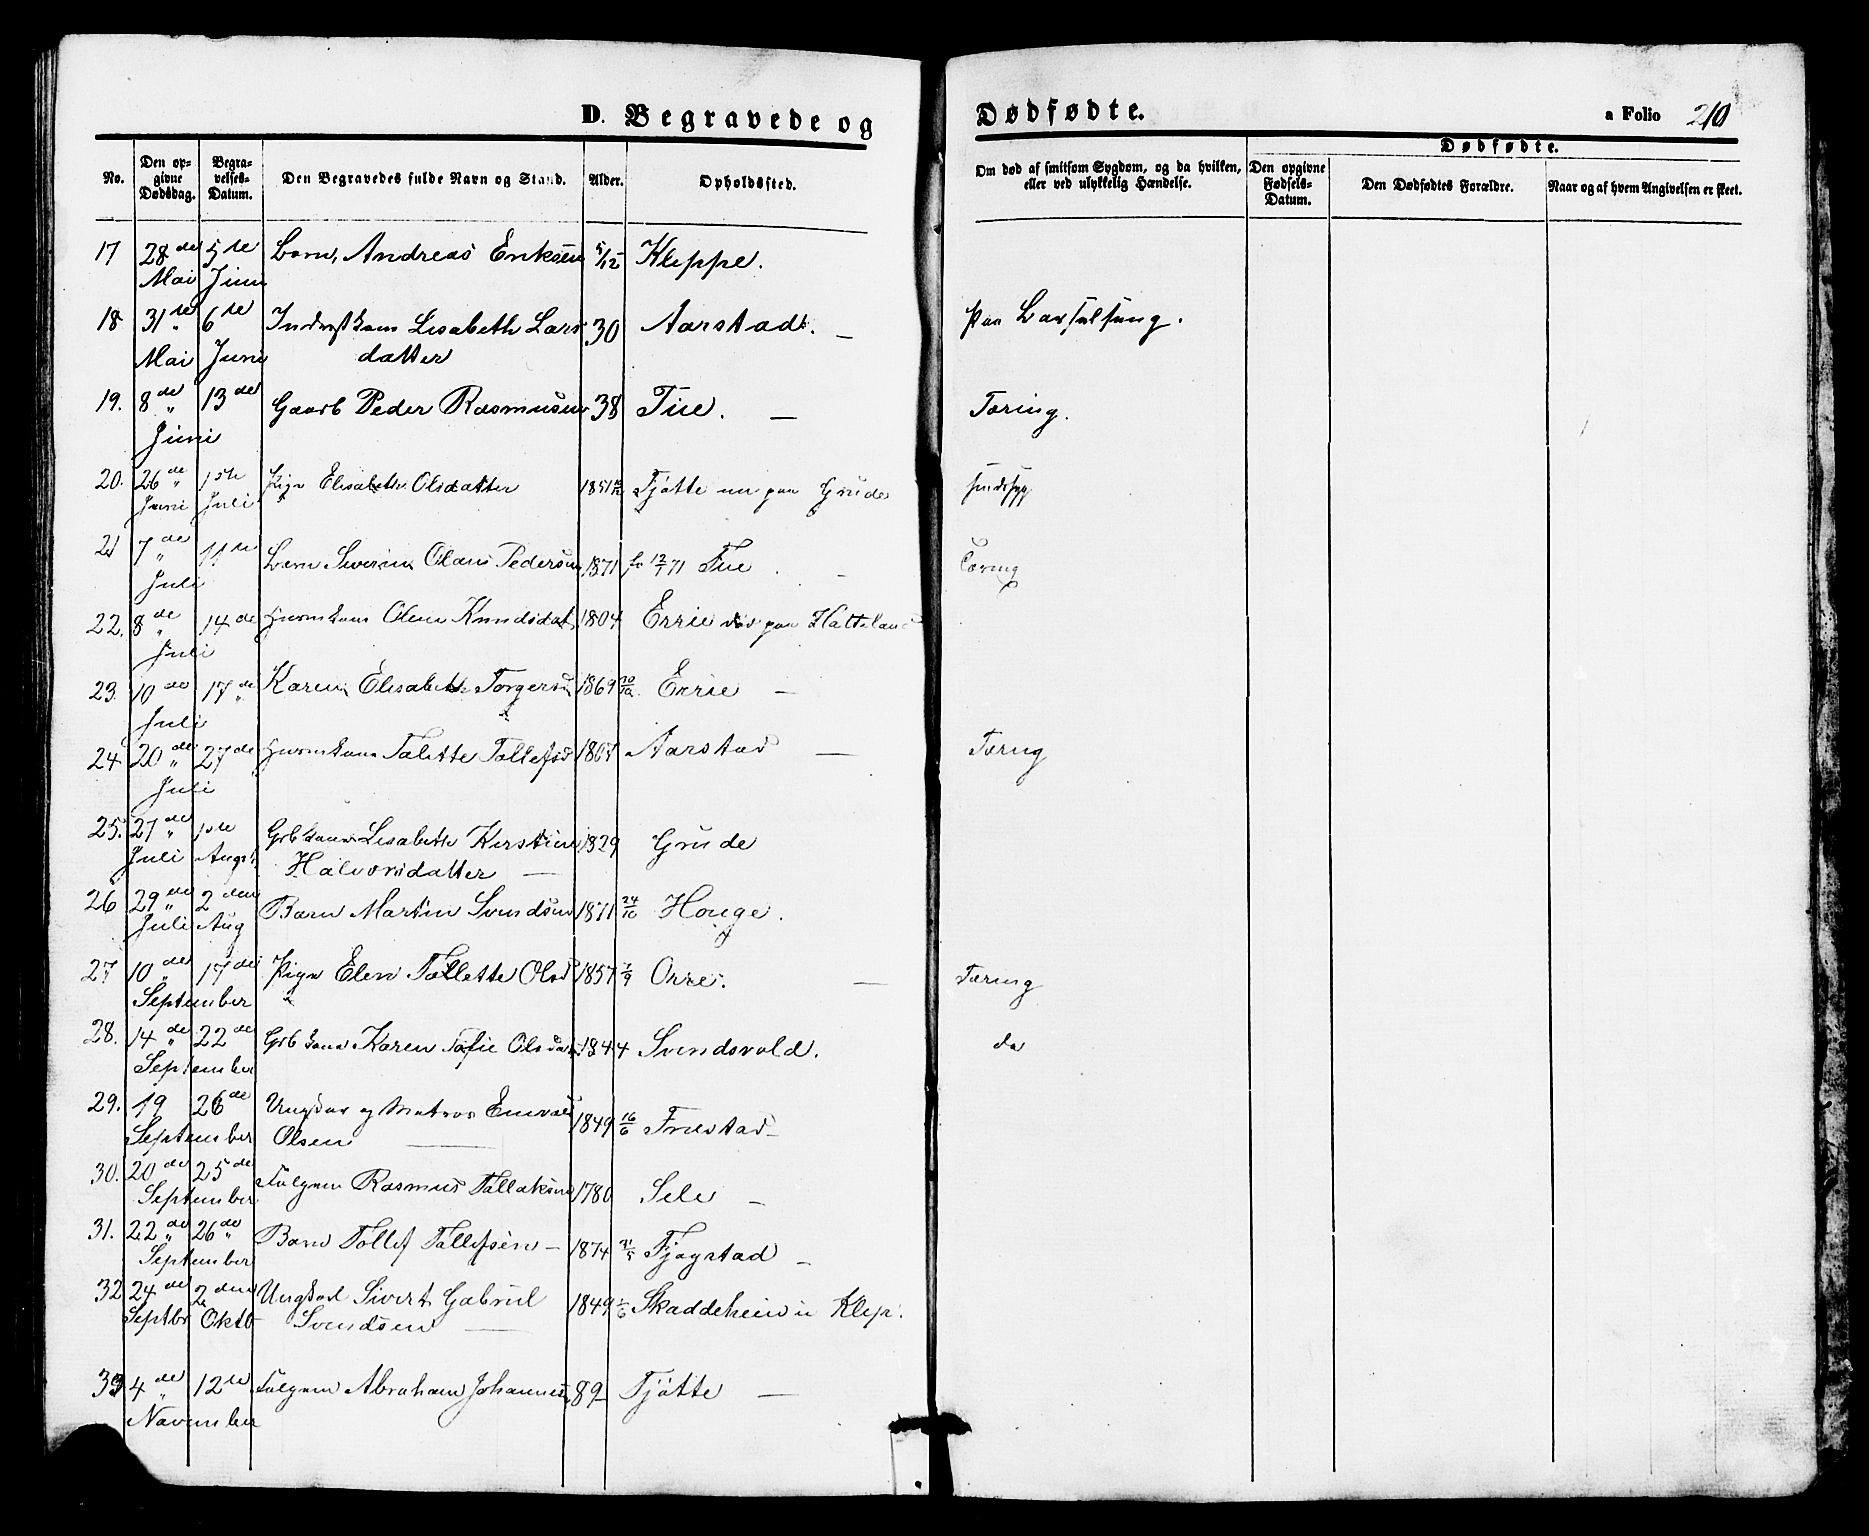 D. Begravede og Dødfødte. a Folio 210
No. Den opgivne Dødsdag. Begravelses-Datum. Den Begravedes fulde Navn og Stand. Alder. Opholdssted. Om død af smitsom Sygdom, og da hvilken, eller ved ulykkelig Hændelse. Dødfødte. Den opgivne Fødsels-Datum. Den Dødfødtes Forældre. Naar og af hvem Angivelsen er skeet.
17 28de 5te Barn, Andreas Eriksen 5/12 Kleppe.
Mai Juni
18 31te 6te Lisabeth Lars 30 Aarstad. — paa Barselseng.
Mai Juni datter
19. 8de 13de Gaarb Peder Rasmusen 38 Tue. — Tæring.
Juni
20. 26de 1ste Pige Elisabeth Olsdatter 1851 Tjøtte nu paa Grude sindssyg
Juni Juli
21 7de 11te Barn Severin Olaus Pedersen 1871 12/7 71 Tue — Tæring
Juli
22. 8de 14de Huusm kone Olene Knudsdat 1804 Errie død paa Hatteland
Juli
23. 10de 17de Karen Elisabeth Torgersd 1869 Errie —
Juli
24 20de 27de Huusm kone Talette Tollefsd Aarstad — Tæring
Juli
25. 27de 1ste Grb kone Lisabeth Kirstine 1829 Grude
Juli Augst Halvorsdatter —
26 29de 2den Barn Martin Svendsen 1871 24/10 Houge.
Juli Aug
27 10de 17de Pige Elen Tallette Olsd 1857 7/9 Orre. — Tæring
September
28. 14de 22de Grb kone Karen Tofie Olsda 1844 Svendsvold. do
September
29. 19 26de Ungkar og Matros 1849 16/6 Friestad —
September Olsen —
30. 20de 25de Følgem Rasmus Tollaksen 1780 Sele —
September
31. 22de 26de Barn Tollef Tollefsen — 1874 Fjogstad —
September
32 24de 2den Ungkarl Sivert Gabriel 1849 1/6 Skaddeheien i Klep.
Septbr Oktb Svendsen —
33 4de 12te Følgem Abraham Johannes 89 Tjøtte —
November